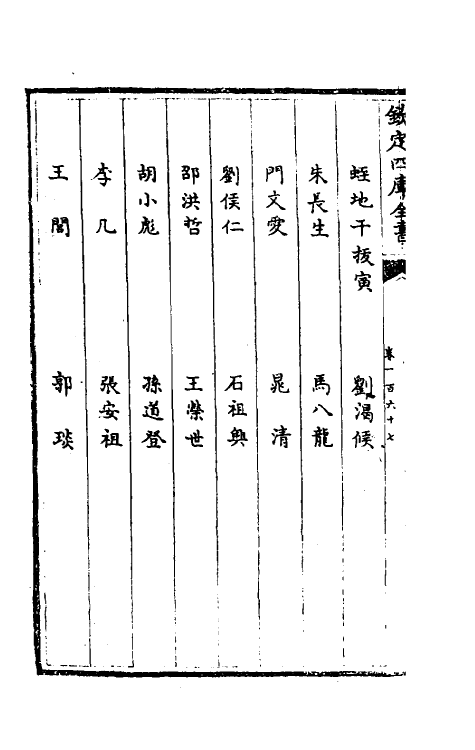 欽定四庫全書
卷一百六十七
蛭地干拔寅　劉渴候
朱長生　馬八龍
門文愛　晁清
劉侯仁　石祖興
邵洪哲　王榮世
胡小彪　孫道登
李几　張安祖
王閭　郭琰